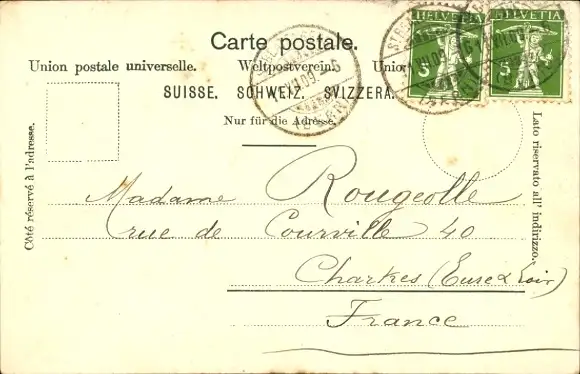 Carte postale.
Union postale universelle. Weltpostverein. Unio
SUISSE. SCHWEIZ. SVIZZERA.
Nur für die Adresse.
HELVETIA
5
HELVETIA
5
Côté réservé à l'adresse.
Lato riservato all' indirizzo.
Madame Rougeolle
rue de Courville 40
Chartres (Eure & Loir)
France